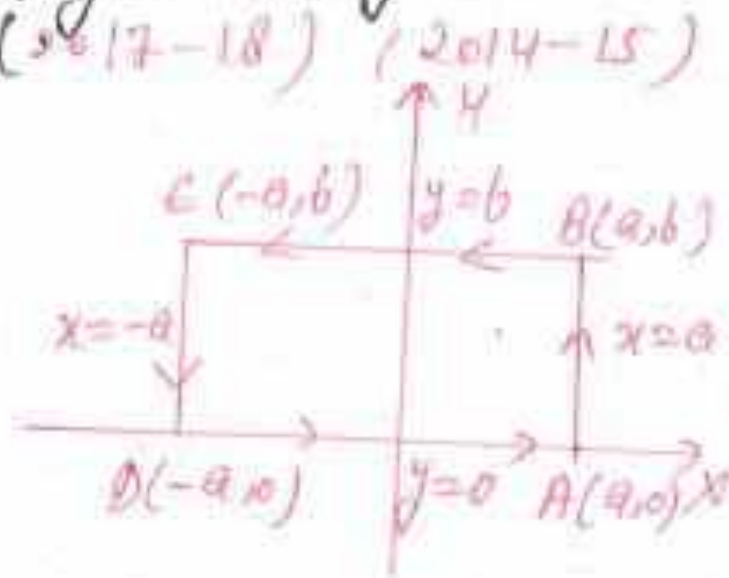 (2017-18) (2014-15)
y
C(-a,b) y=b B(a,b)
x=-a x=a
D(-a,0) y=0 A(a,0) x